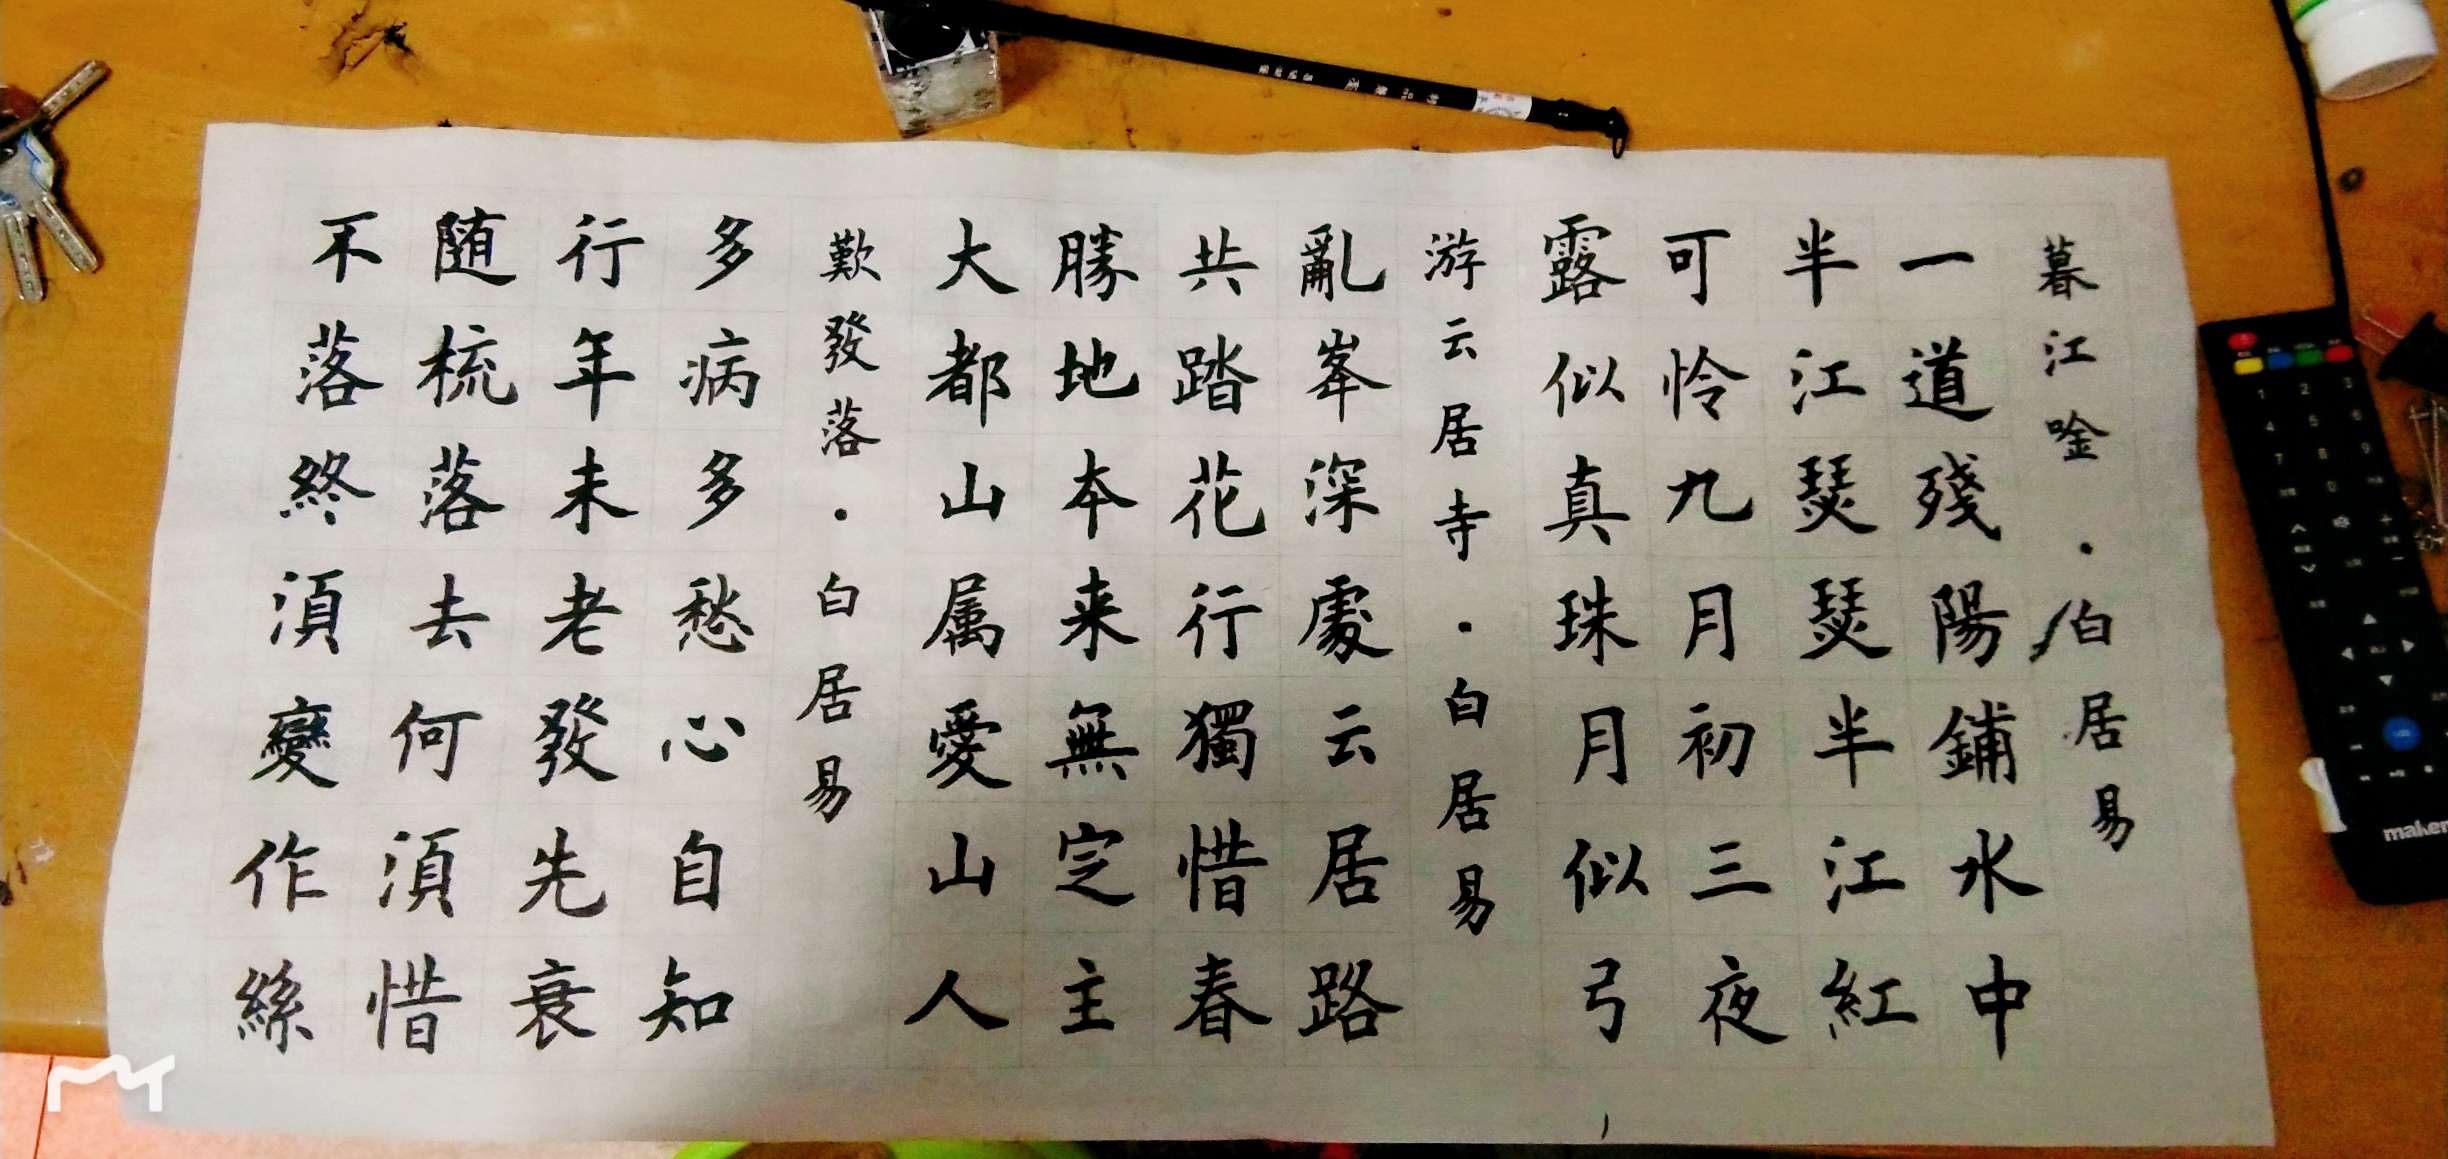 暮江唫·白居易
一道殘陽鋪水中
半江瑟瑟半江紅
可怜九月初三夜
露似真珠月似弓
游云居寺·白居易
亂峯深處云居路
共踏花行獨惜春
勝地本来無定主
大都山属愛山人
歎發落·白居易
多病多愁心自知
行年未老發先衰
随梳落去何須惜
不落終須變作絲
1 2 3
4 5 6
7 8 9
0